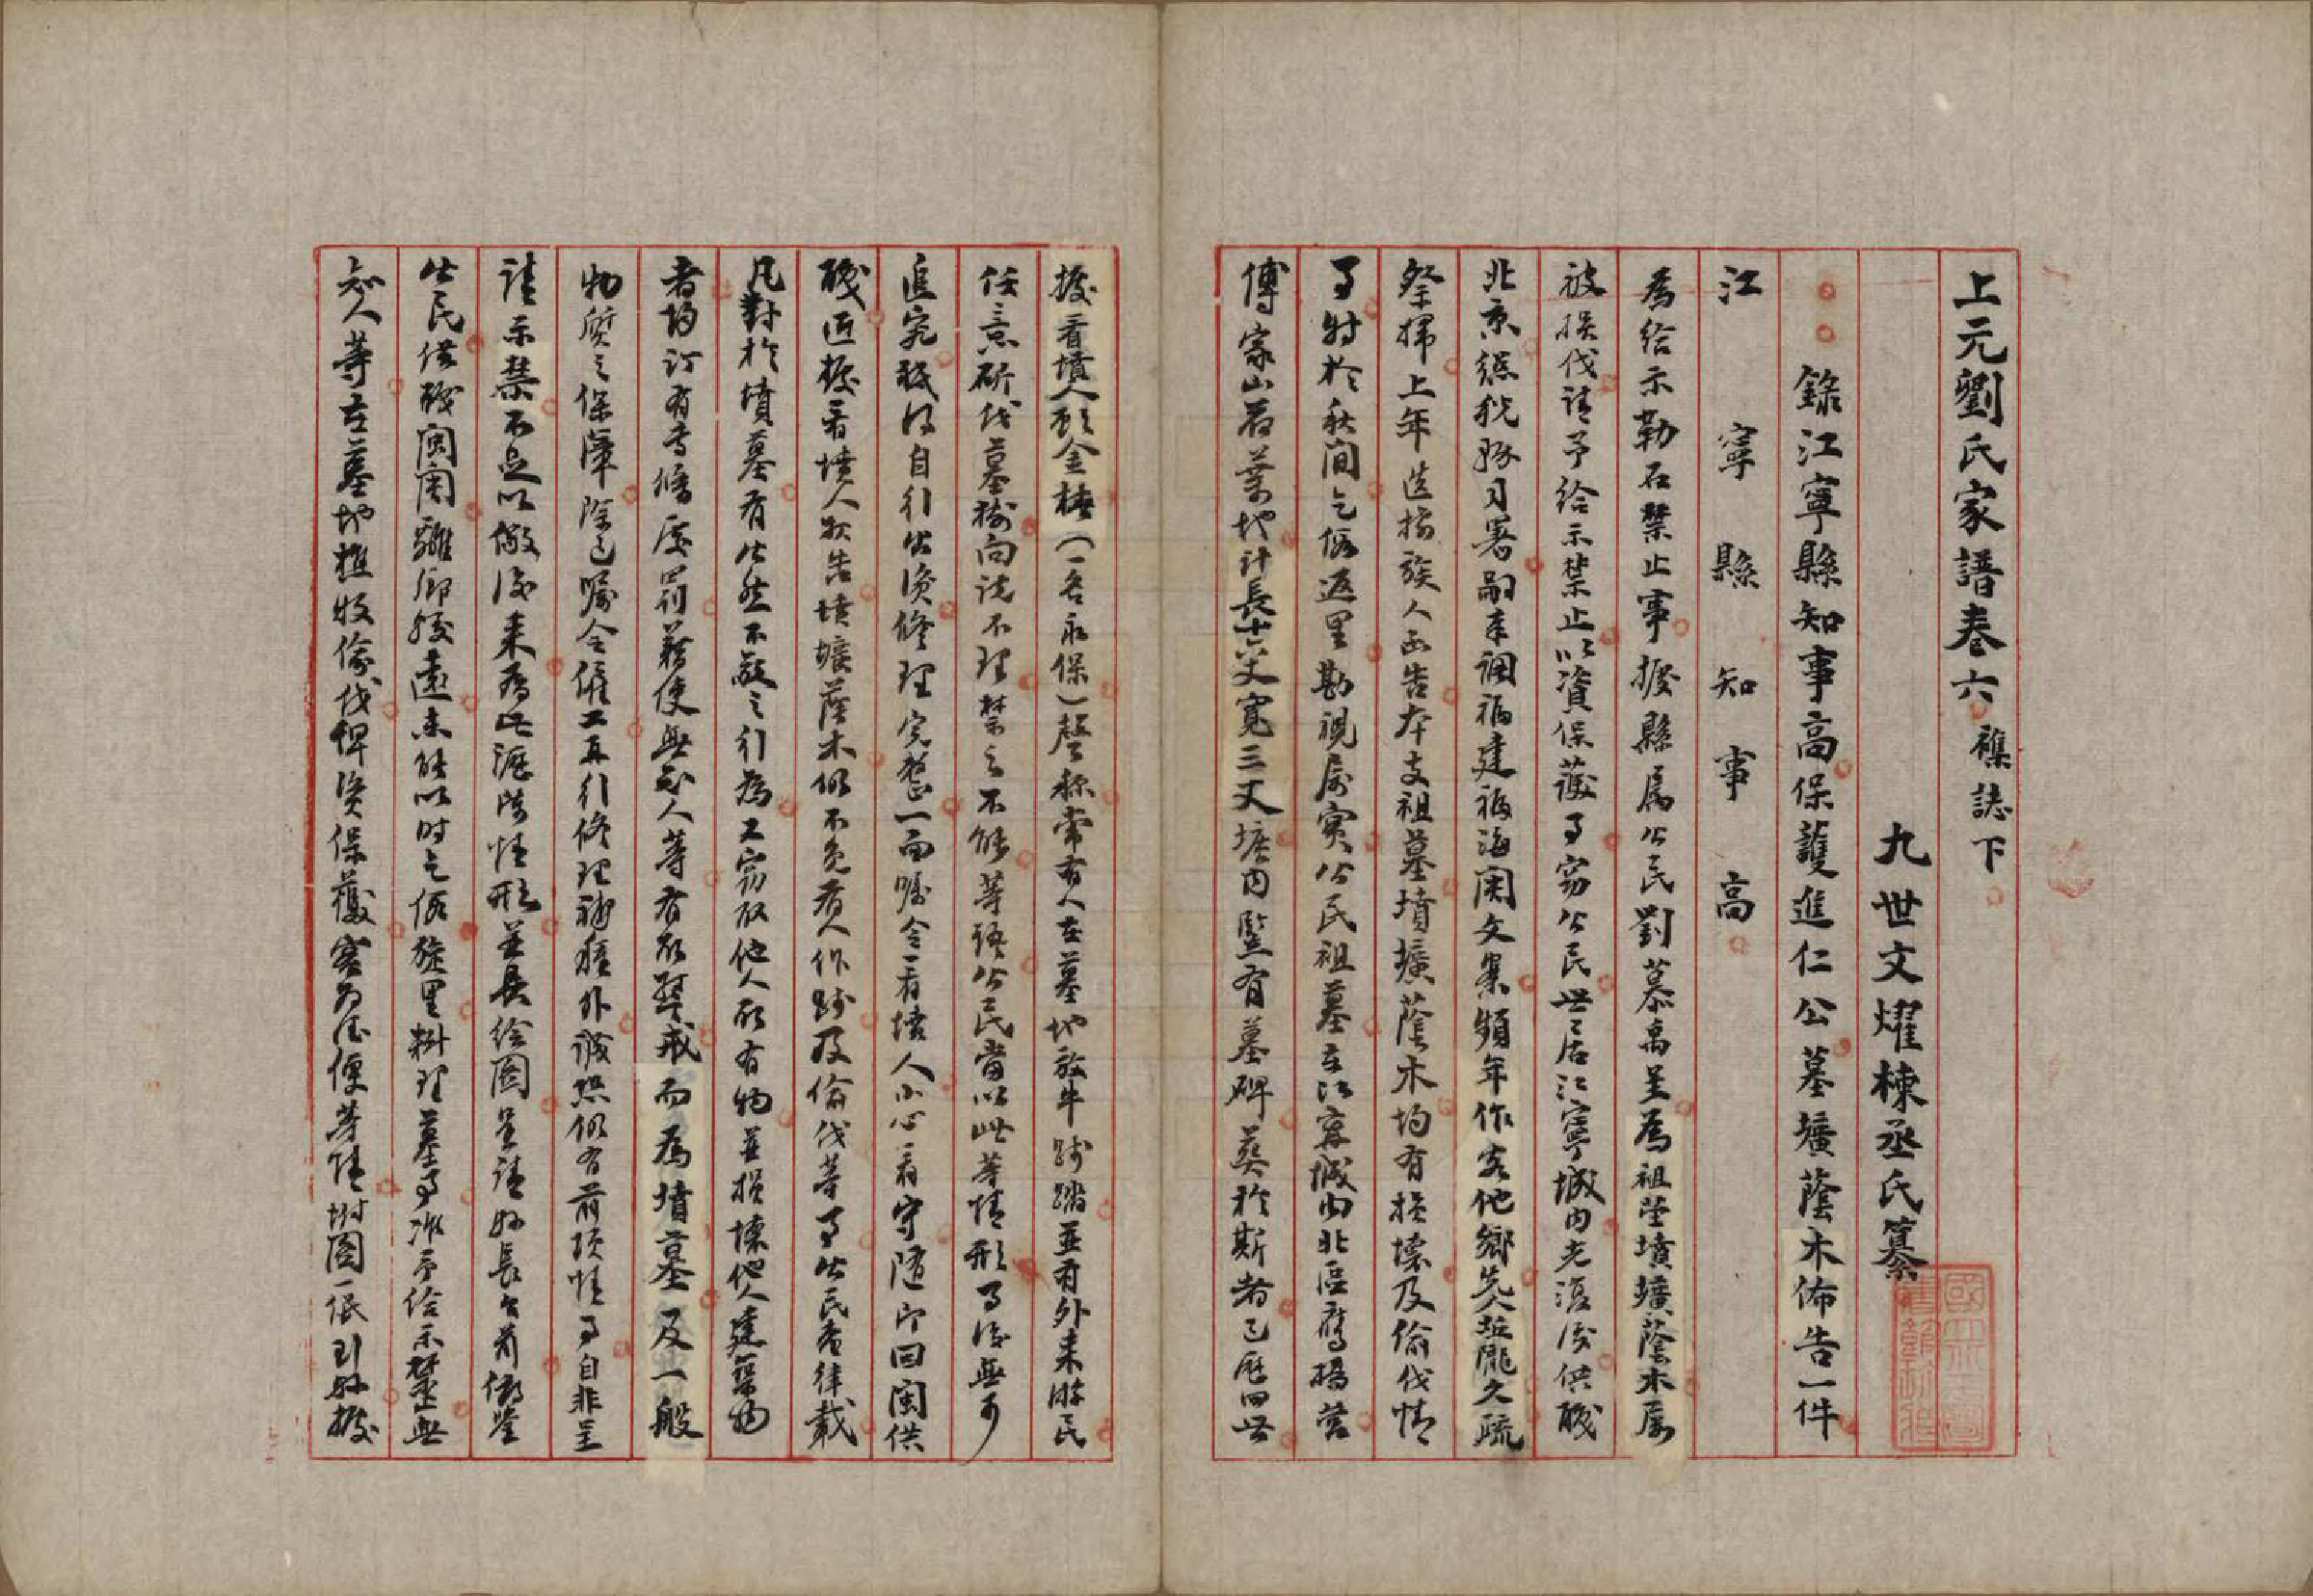 上元劉氏家譜卷六 襍誌下
九世文燿棟丞氏纂
錄江寧縣知事高保護進仁公墓壙蔭木佈告一件
江寧縣知事高
為給示勒石禁止事據縣屬公民劉慕禼呈為祖塋墳壙蔭木屢
被損伐請予給示禁止以資保護事窃公民世居江寧城內光復後供職
北京繼稅務司署嗣奉調福建福海關文案頻年作客他鄉先人坵隴久疏
祭掃上年迭接族人函告本支祖墓墳壙蔭木均有損壞及偷伐情
事特於秋間乞假返里勘視屬實公民祖墓在江寧城內北區鷹揚營
傅家山若葉地計長十六丈寬三丈壙內豎有墓碑葵於斯者已歷四世
據看墳人顧金橋（一名永保）聲称常有人在墓地放牛踐踏並有外來游民
任意斫伐墓樹向説不理禁之不能等語公民當以此等情形事後無可
追究祗得自行出資修理完整一面囑令看墳人小心看守隨即回閩供
職近據看墳人報告墳壙蔭木仍不免有人作踐及偷伐等事公民查律載
凡對於墳墓有公然不敬之行為又窃取他人所有物並損壞他人建築物
者均訂有專條處罰藉使無知人等有所懲戒而為墳墓及一般
物質之保障除已囑令僱工再行修理補種外誠恐仍有前項情事自非呈
請示禁不足以儆後來為此瀝陳情形並具繪圖呈請 縣長台前俯鑒
公民供職閩関離鄉較遠未能以時乞假旋里料理墓事准予給示禁止無
知人等在墓地樵牧偷伐俾資保護實為德便等情附圖一張到縣據